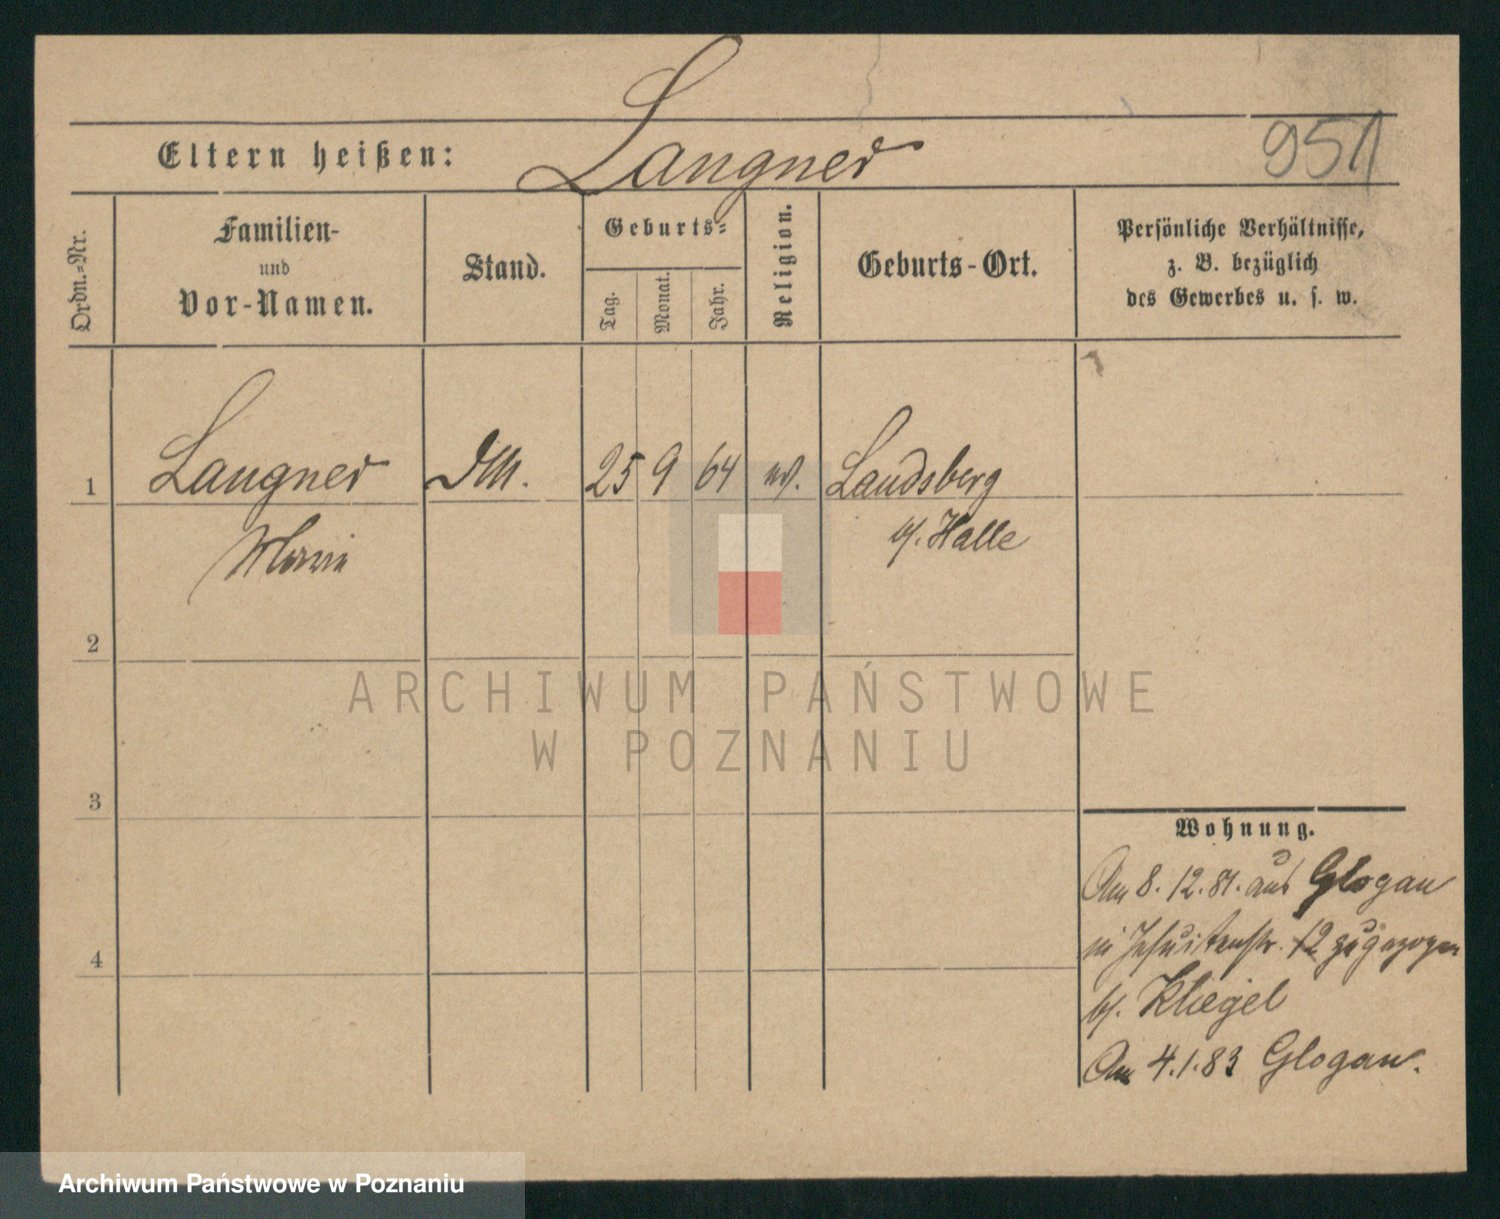 Langner
Eltern heißen:
951
Ordn.=Nr.
Familien-
und
Vor-Namen.
Stand.
Geburts=
Tag.
Monat.
Jahr.
Religion.
Geburts-Ort.
Persönliche Verhältnisse,
z. B. bezüglich
des Gewerbes u. s. w.
1
Langner
25 9 64
Landsberg
Marie
b/. Halle
2
ARCHIWUM PAŃSTWOWE
W POZNANIU
3
Wohnung.
Am 8. 12. 81. aus Glogau
in Jesuitenstr. 12 zugezogen
4
b/. Kliegel
Am 4.1.83 Glogau.
Archiwum Państwowe w Poznaniu